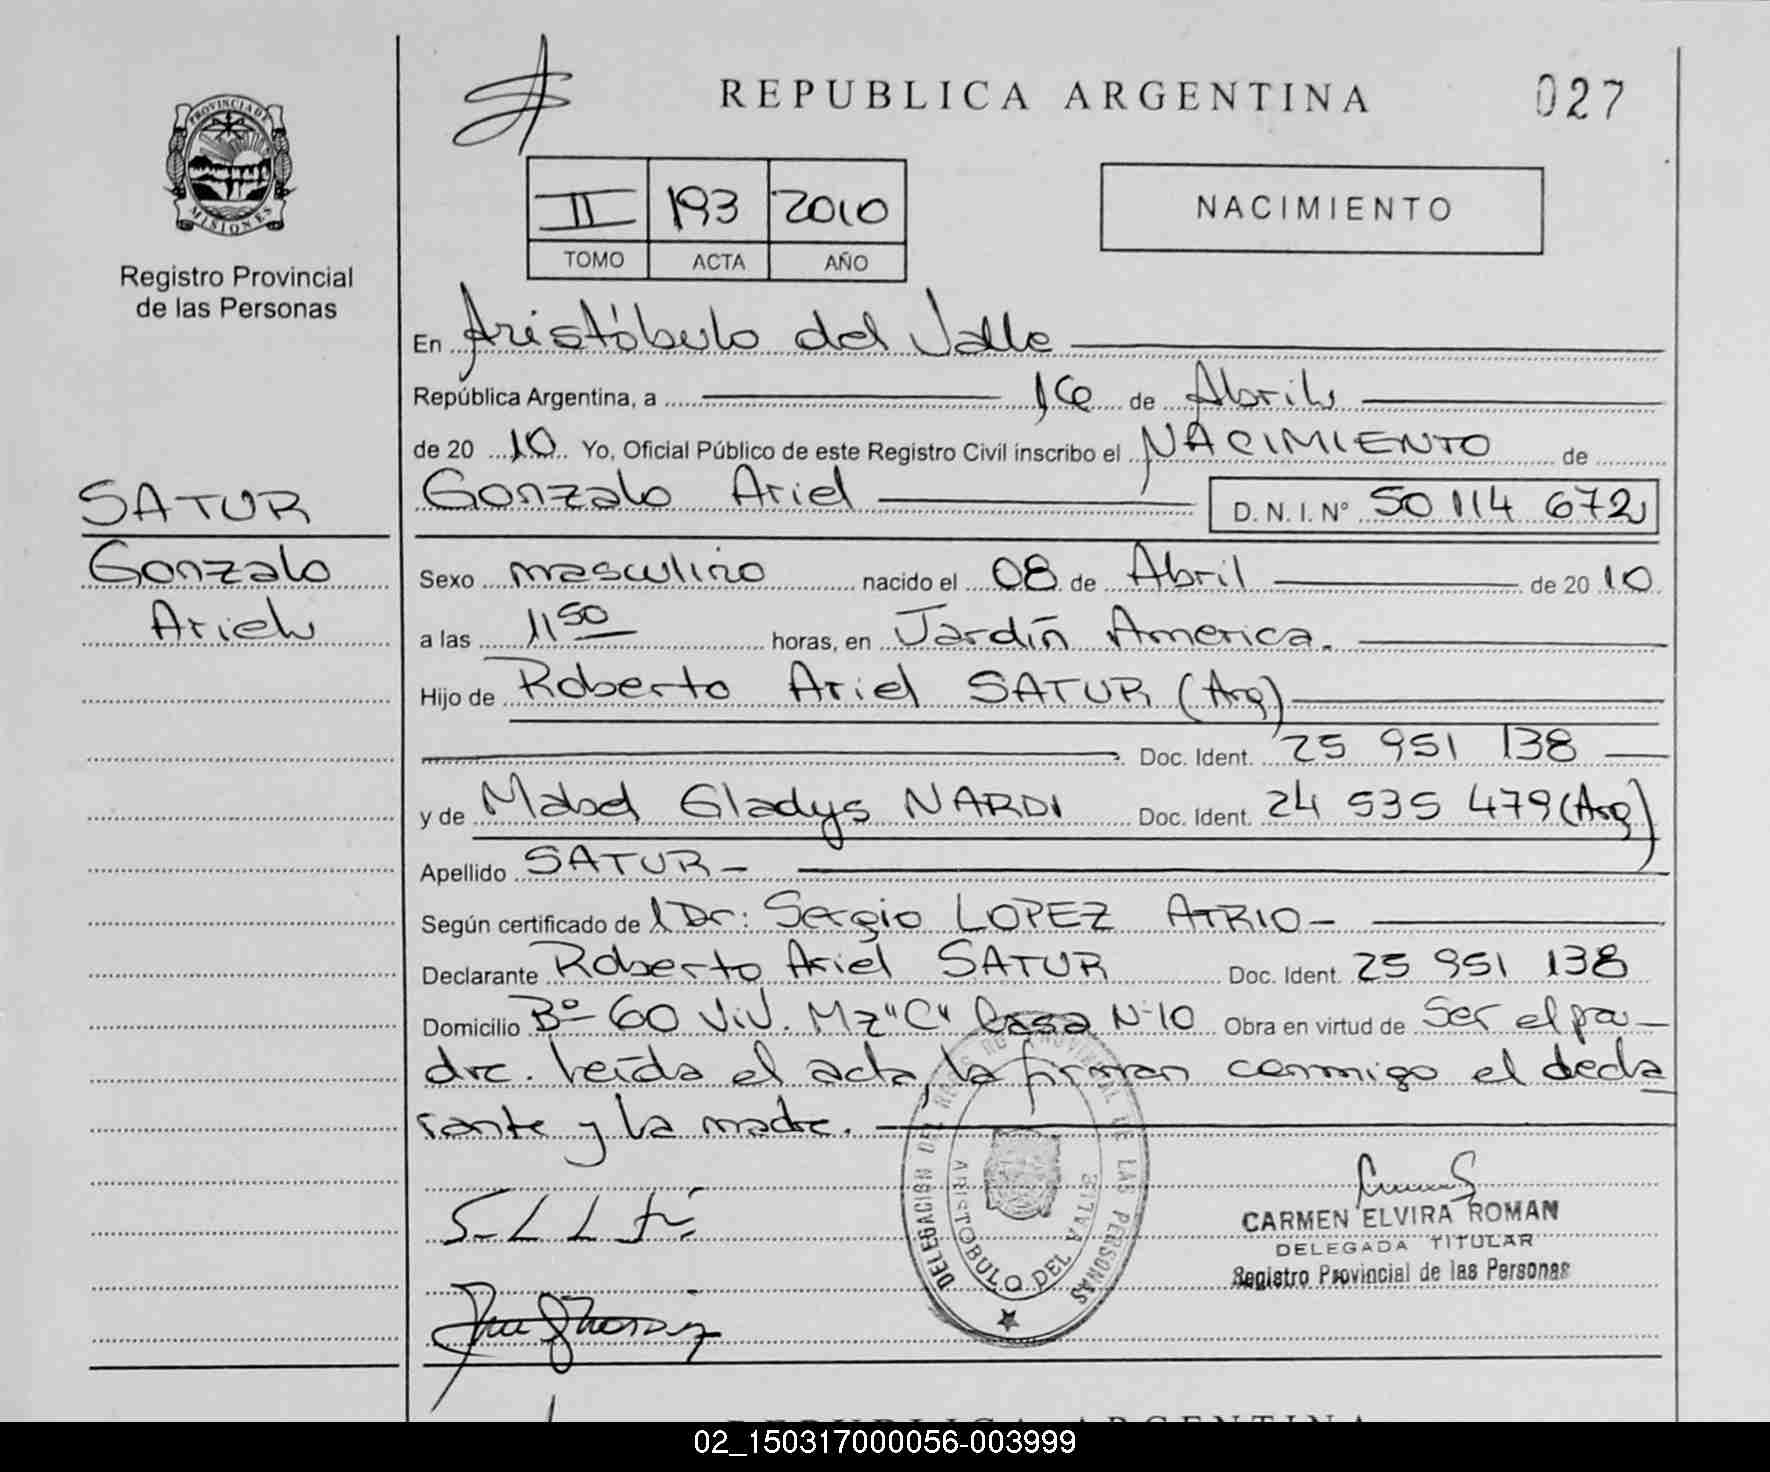 REPUBLICA ARGENTINA
027
PROVINCIA DE
MISIONES
Registro Provincial
de las Personas
II 193 2010
TOMO ACTA AÑO
NACIMIENTO
En Aristóbulo del Valle
República Argentina, a 16 de Abril
de 20 10 Yo, Oficial Público de este Registro Civil inscribo el NACIMIENTO de
Gonzalo Ariel D. N. I. N° 50 114 672
SATUR
Gonzalo
Ariel
Sexo masculino nacido el 08 de Abril de 20 10
a las 11 50 horas, en Jardín America.
Hijo de Roberto Ariel SATUR (Arg)
Doc. Ident. 25 951 138
y de Mabel Gladys NARDI Doc. Ident. 24 535 479 (Arg)
Apellido SATUR -
Según certificado de Dr: Sergio LOPEZ ATRIO -
Declarante Roberto Ariel SATUR Doc. Ident. 25 951 138
Domicilio B° 60 Viv. Mz "C" Casa N° 10 Obra en virtud de Ser el pa-
dre. leída el acta, la firman conmigo el decla
rante y la madre.
DELEGACION DEL REG. PROVINCIAL DE LAS PERSONAS
ARISTOBULO DEL VALLE
CARMEN ELVIRA ROMAN
DELEGADA TITULAR
Registro Provincial de las Personas
REPUBLICA ARGENTINA
02_150317000056-003999